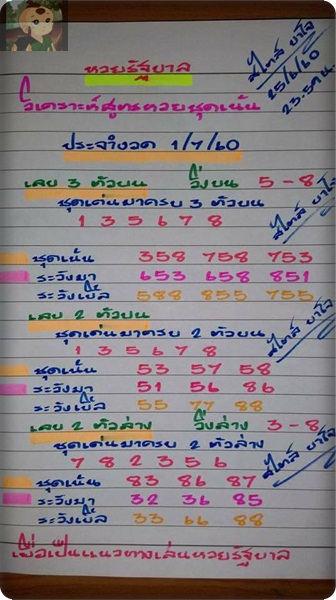 หวยรัฐบาล
สไทล์ ยาใจ
25/6/60
23.59 น.
วิเคราะห์สูตรหวยชุดเน้น
ประจำงวด 1/7/60
เลข 3 ตัวบน วิ่งบน 5-8
ชุดเด่นมาครบ 3 ตัวบน
1 3 5 6 7 8
สไทล์ ยาใจ
ชุดเน้น 358 758 753
ระวังมา 653 658 851
ระวังเบิ้ล 588 855 755
เลข 2 ตัวบน
ชุดเด่นมาครบ 2 ตัวบน
1 3 5 6 7 8
สไทล์ ยาใจ
ชุดเน้น 53 57 58
ระวังมา 51 56 86
ระวังเบิ้ล 55 77 88
เลข 2 ตัวล่าง วิ่งล่าง 3-8
ชุดเด่นมาครบ 2 ตัวล่าง
7 8 2 3 5 6
สไทล์ ยาใจ
ชุดเน้น 83 86 87
ระวังมา 32 36 85
ระวังเบิ้ล 33 66 88
เพื่อเป็นแนวทางเล่นหวยรัฐบาล